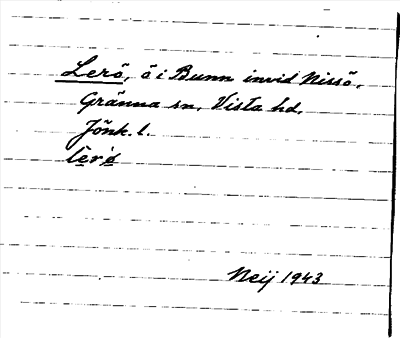 Lerö, ö i Bunn invid Nissö,
Gränna sn, Vista hd,
Jönk. l.
Neij 1943